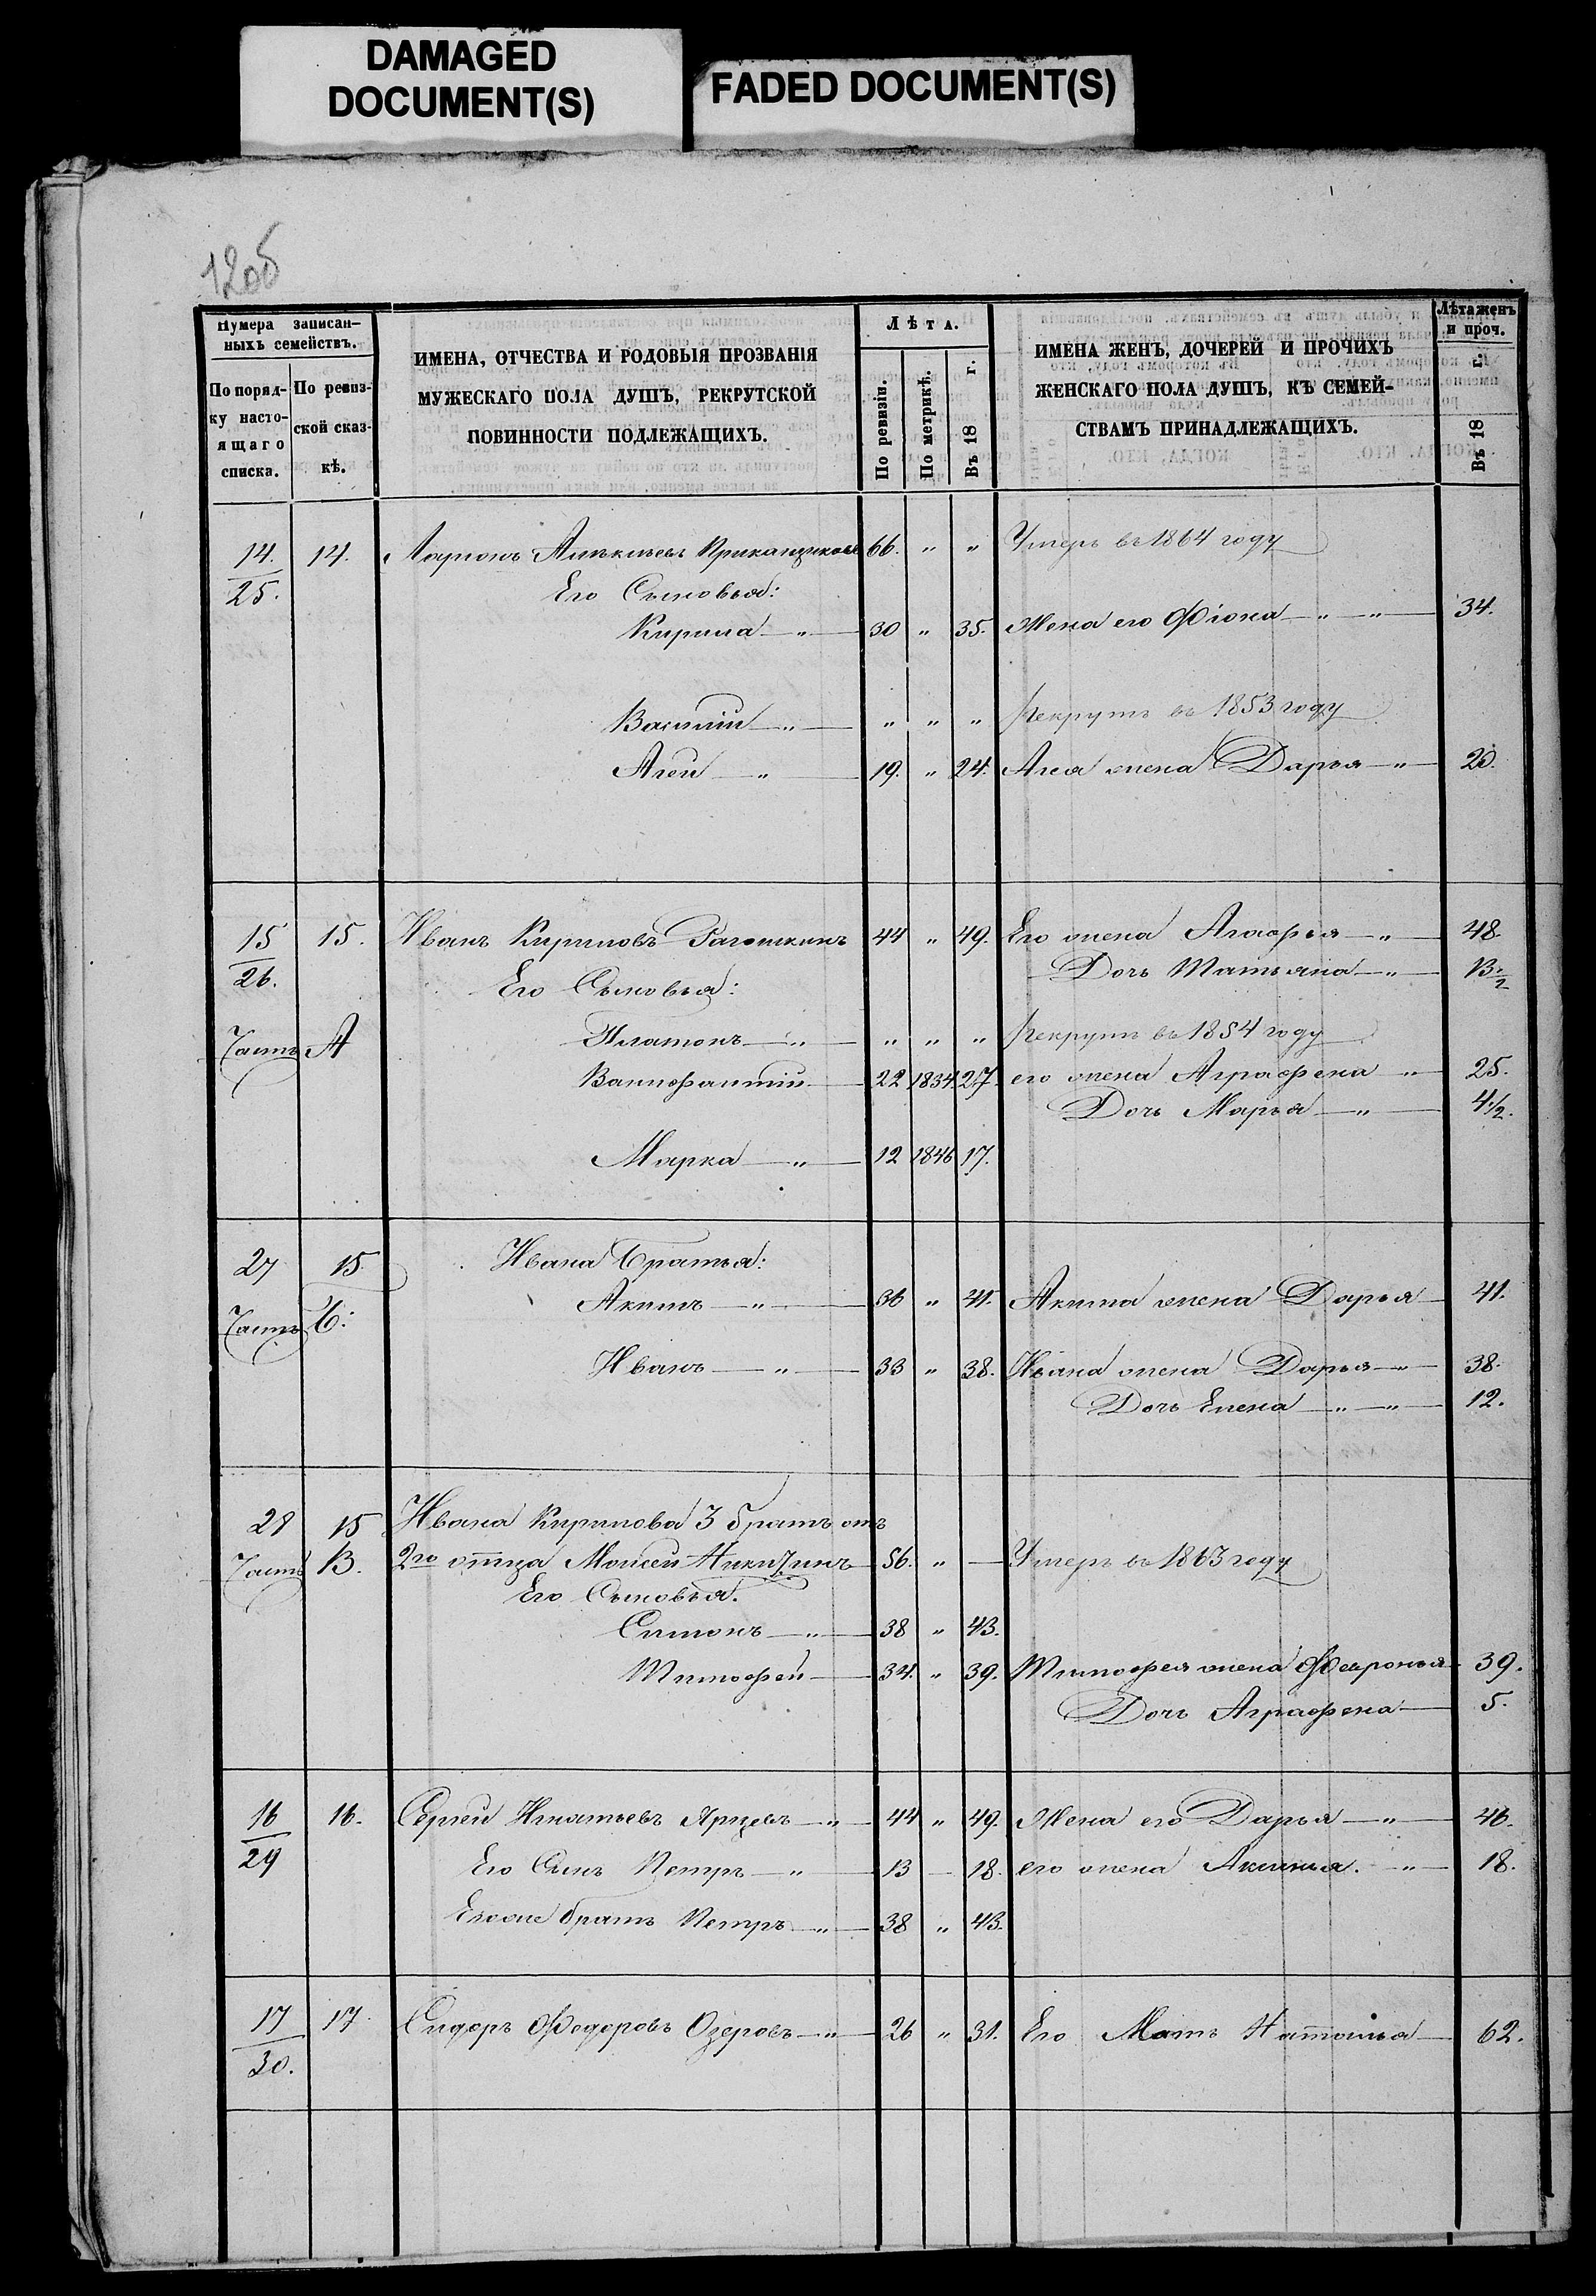 DAMAGED
DOCUMENT(S)
FADED DOCUMENT(S)
12об
Нумера записан-
ныхъ семействъ.
По поряд-
ку насто-
ящаго
списка.
По ревиз-
ской сказ-
кѣ.
ИМЕНА, ОТЧЕСТВА И РОДОВЫЯ ПРОЗВАНІЯ
МУЖЕСКАГО ПОЛА ДУШЪ, РЕКРУТСКОЙ
ПОВИННОСТИ ПОДЛЕЖАЩИХЪ.
Лѣта.
По ревизіи.
По метрикѣ.
Въ 18 г.
ИМЕНА ЖЕНЪ, ДОЧЕРЕЙ И ПРОЧИХЪ
ЖЕНСКАГО ПОЛА ДУШЪ, КЪ СЕМЕЙ-
СТВАМЪ ПРИНАДЛЕЖАЩИХЪ.
Лѣта женъ
и проч.
Въ 18 г.
14. 14. Ларионъ 66. " " Умеръ въ 1864 году
25. Его Сыновья:
Кирила " 30 " 35. Жена его Фіона " " 34.
Василий " " " " рекрутъ въ 1853 году
Агей " 19. " 24. Агея жена Дарья " 20.
15 15. Иванъ Кириловъ Рагошкинъ 44 " 49. Его жена Агафья " 48.
26. Его Сыновья: Дочь Татьяна " 13 1/2
Часть А Платонъ " " " " рекрутъ въ 1854 году
22 1834 27. его жена Аграфена " 25.
Дочь Марья " 4 1/2.
Марка " 12 1846 17.
27 15 Ивана Братья:
Часть Б: Акимъ " 36 " 41. Акима жена Дарья 41.
Иванъ " 33 " 38. Ивана жена Дарья " 38.
Дочь Елена " " 12.
28 15 Ивана Кирилова 3 братъ отъ
Часть В. 2го отца Моисей Никитинъ 56. " — Умеръ въ 1863 году
Его Сыновья.
Симонъ " 38 " 43.
Тимофей 34. " 39. Тимофея жена Февронья 39.
Дочь Аграфена 5.
16 16. Сергей Игнатьевъ Ярцевъ " 44 " 49. Жена его Дарья " 46.
29 Его Сынъ Петръ " 13 — 18. его жена Аксинья. " 18.
Егоже братъ Петръ " 38 " 43.
17 17. Сидоръ Федоровъ Озеровъ " 26 " 31. Его Мать Наталья 62.
30.